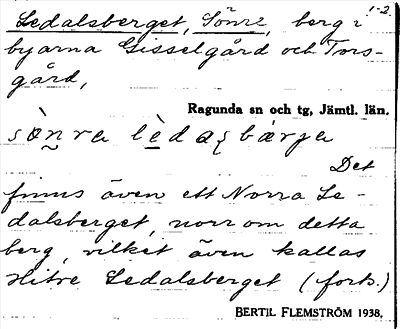 1-2.
Ledalsberget, Södra, berg i
byarna Gisselgård och Tors-
gård,
Ragunda sn och tg, Jämtl. län.
Det
finns även ett Norra Le-
dalsberget, norr om detta
berg, vilket även kallas
Hitre Ledalsberget (forts.)
BERTIL FLEMSTRÖM 1938,